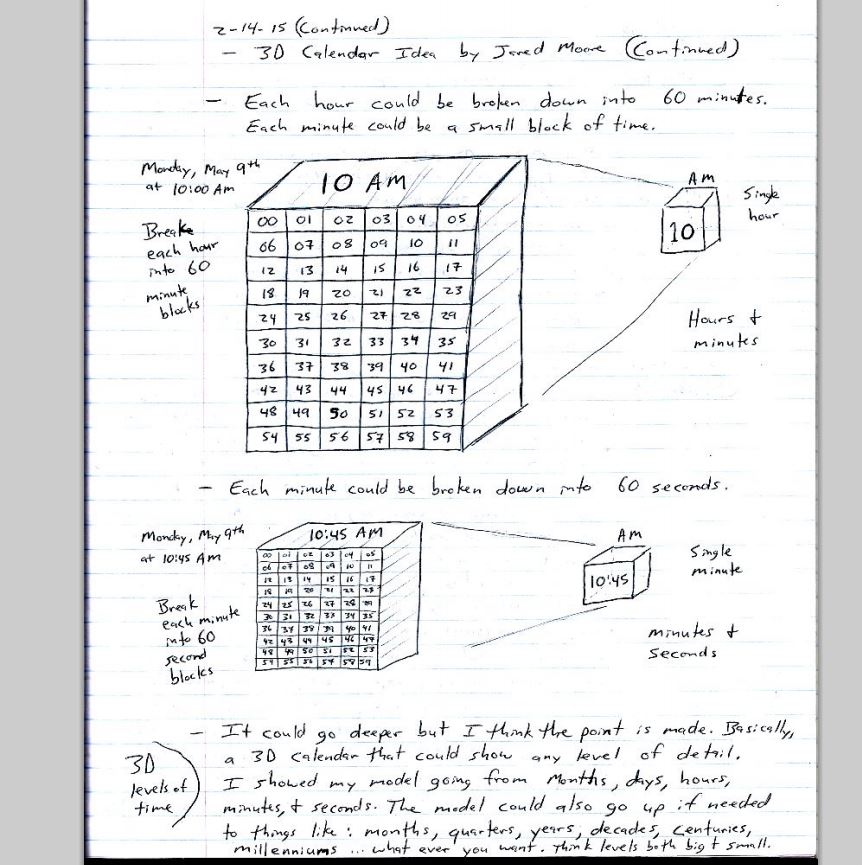 2-14-15 (Continued)
- 3D Calendar Idea by Jared Moore (Continued)
- Each hour could be broken down into 60 minutes.
Each minute could be a small block of time.
Monday, May 9th
at 10:00 Am
Breake
each hour
into 60
minute
blocks
10 AM
00 01 02 03 04 05
06 07 08 09 10 11
12 13 14 15 16 17
18 19 20 21 22 23
24 25 26 27 28 29
30 31 32 33 34 35
36 37 38 39 40 41
42 43 44 45 46 47
48 49 50 51 52 53
54 55 56 57 58 59
Am
10
Single
hour
Hours +
minutes
- Each minute could be broken down into 60 seconds.
Monday, May 9th
at 10:45 Am
Break
each minute
into 60
second
blocks
10:45 AM
00 01 02 03 04 05
06 07 08 09 10 11
12 13 14 15 16 17
18 19 20 21 22 23
24 25 26 27 28 29
30 31 32 33 34 35
36 37 38 39 40 41
42 43 44 45 46 47
48 49 50 51 52 53
54 55 56 57 58 59
Am
10:45
Single
minute
minutes +
Seconds
3D
levels of
time
- It could go deeper but I think the point is made. Basically,
a 3D calendar that could show any level of detail.
I showed my model going from Months, days, hours,
minutes, + seconds. The model could also go up if needed
to things like: months, quarters, years, decades, centuries,
millenniums ... what ever you want. Think levels both big + small.